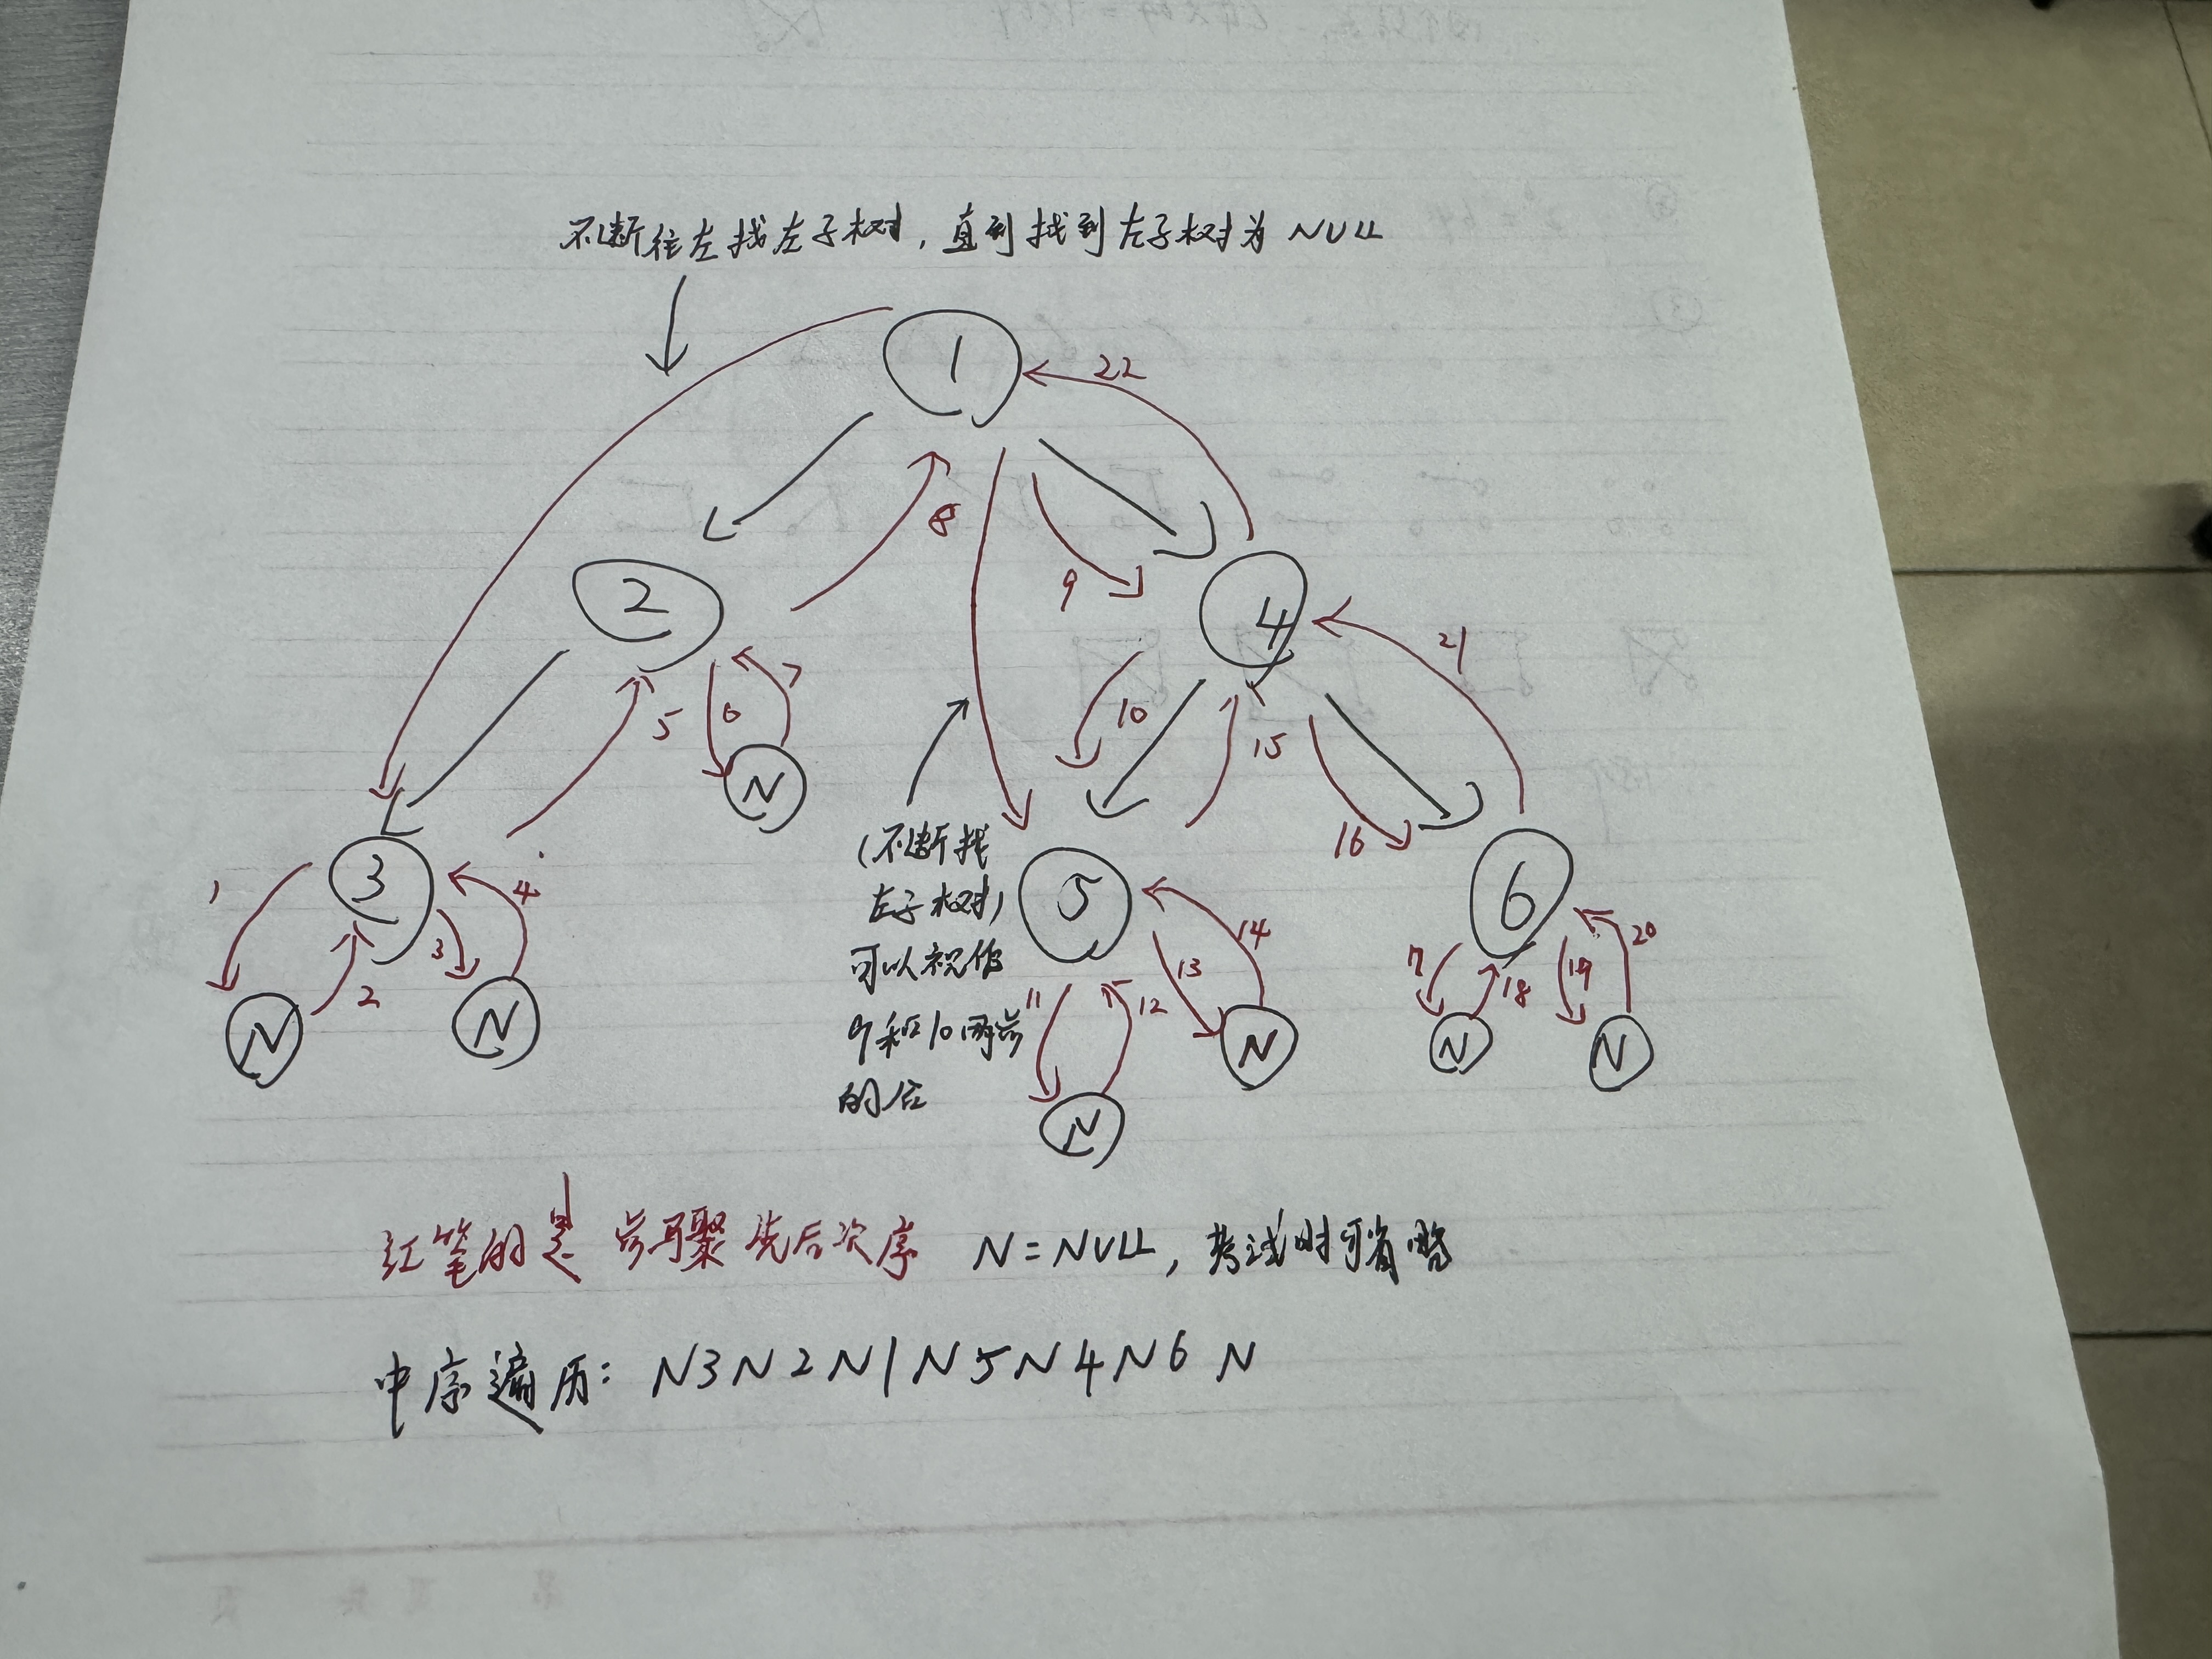 不断往左找左子树，直到找到左子树为NULL
1
22
8
9
2
4
21
5
6
7
10
15
16
N
(不断找
左子树)
可以视作
9和10两步
的合
3
5
6
1
4
3
2
N
N
14
13
11
12
N
N
17
18
19
20
N
N
红笔的是步骤先后次序 N=NULL，考试时可省略
中序遍历：N3N2N1N5N4N6N